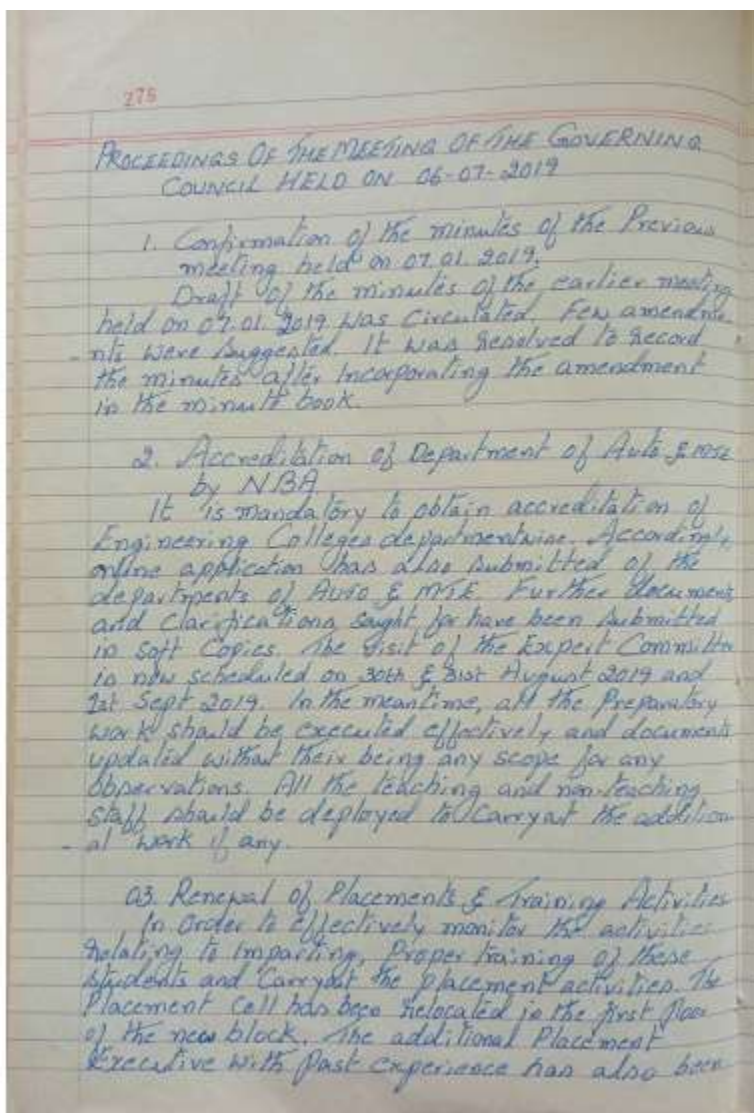 276
PROCEEDINGS OF THE MEETING OF THE GOVERNING
COUNCIL HELD ON 06-07-2019
1. Confirmation of the minutes of the Previous
meeting held on 07.01.2019.
Draft of the minutes of the earlier meeting
held on 07.01.2019 was Circulated. Few amendme
-nts were suggested. It was resolved to record
the minutes after Incorporating the amendment
in the minute book.
2. Accreditation of Department of Auto & MTE
by NBA
It is mandatory to obtain accreditation of
Engineering Colleges departmentwise. Accordingly,
online application has also submitted of the
departments of AUTO & MTE. Further documents
and clarifications sought for have been submitted
in soft Copies. The visit of the Expert Committee
is now scheduled on 30th & 31st August 2019 and
1st Sept 2019. In the meantime, all the Preparatory
work should be executed effectively and documents
updated without their being any scope for any
observations. All the teaching and non-teaching
staff should be deployed to Carryout the addition
-al work if any.
03. Renewal of Placements & Training Activities
In Order to effectively monitor the activities
relating to Imparting, Proper training of these
students and Carryout the placement activities. The
Placement Cell has been relocated in the first floor
of the new block. The additional Placement
Executive with Past experience has also been